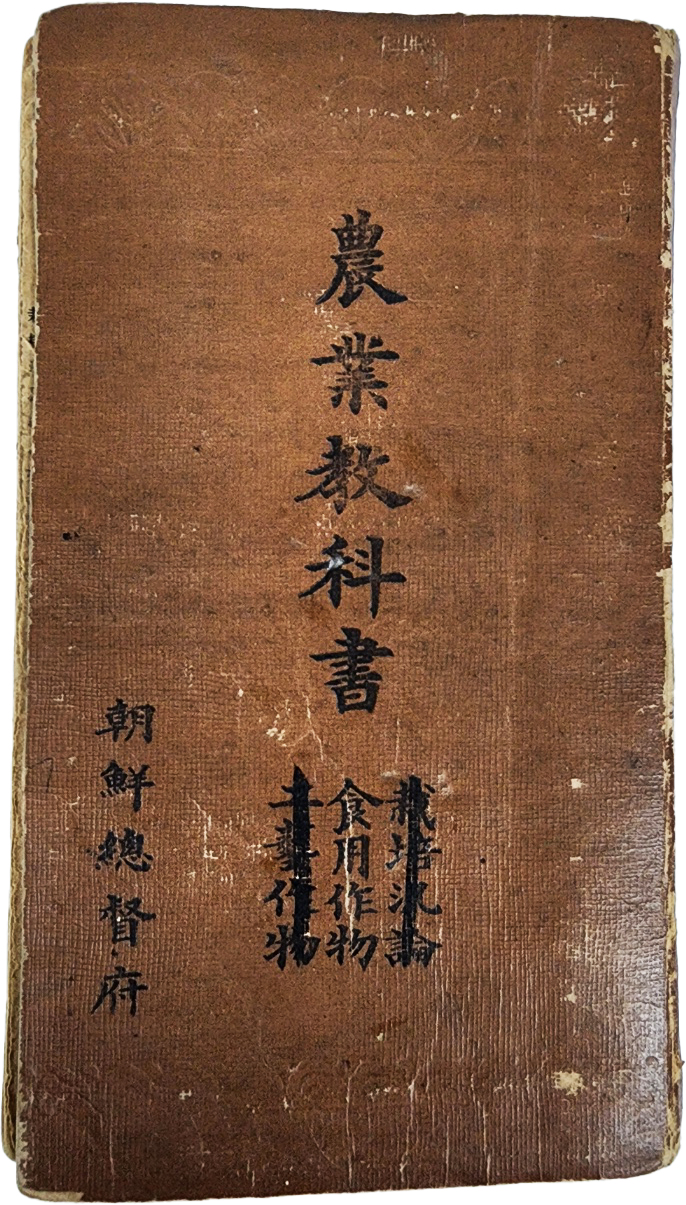 農業教科書
栽培汎論
食用作物
工藝作物
朝鮮總督府